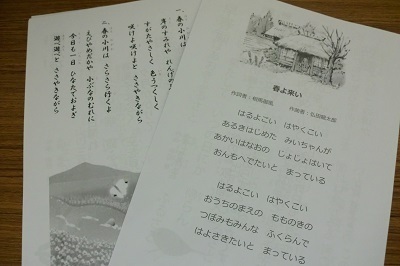 一、春の小川は
岸のすみれや れんげの
すがたやさしく 色うつくしく
咲けよ咲けよと ささやきながら
二、春の小川は さらさら行くよ
えびやめだかや 小ぶなのむれに
今日も一日 ひなたでおよぎ
遊べ遊べと ささやきながら
春よ来い
作詞者：相馬御風 作曲者：弘田龍太郎
はるよこい はやくこい
あるきはじめた みいちゃんが
あかいはなおの じょじょはいて
おんもへでたいと まっている
はるよこい はやくこい
おうちのまえの もものきの
つぼみもみんな ふくらんで
はよさきたいと まっている